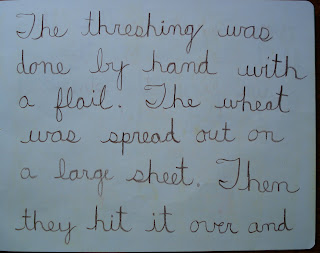 The threshing was
done by hand with
a flail. The wheat
was spread out on
a large sheet. Then
they hit it over and